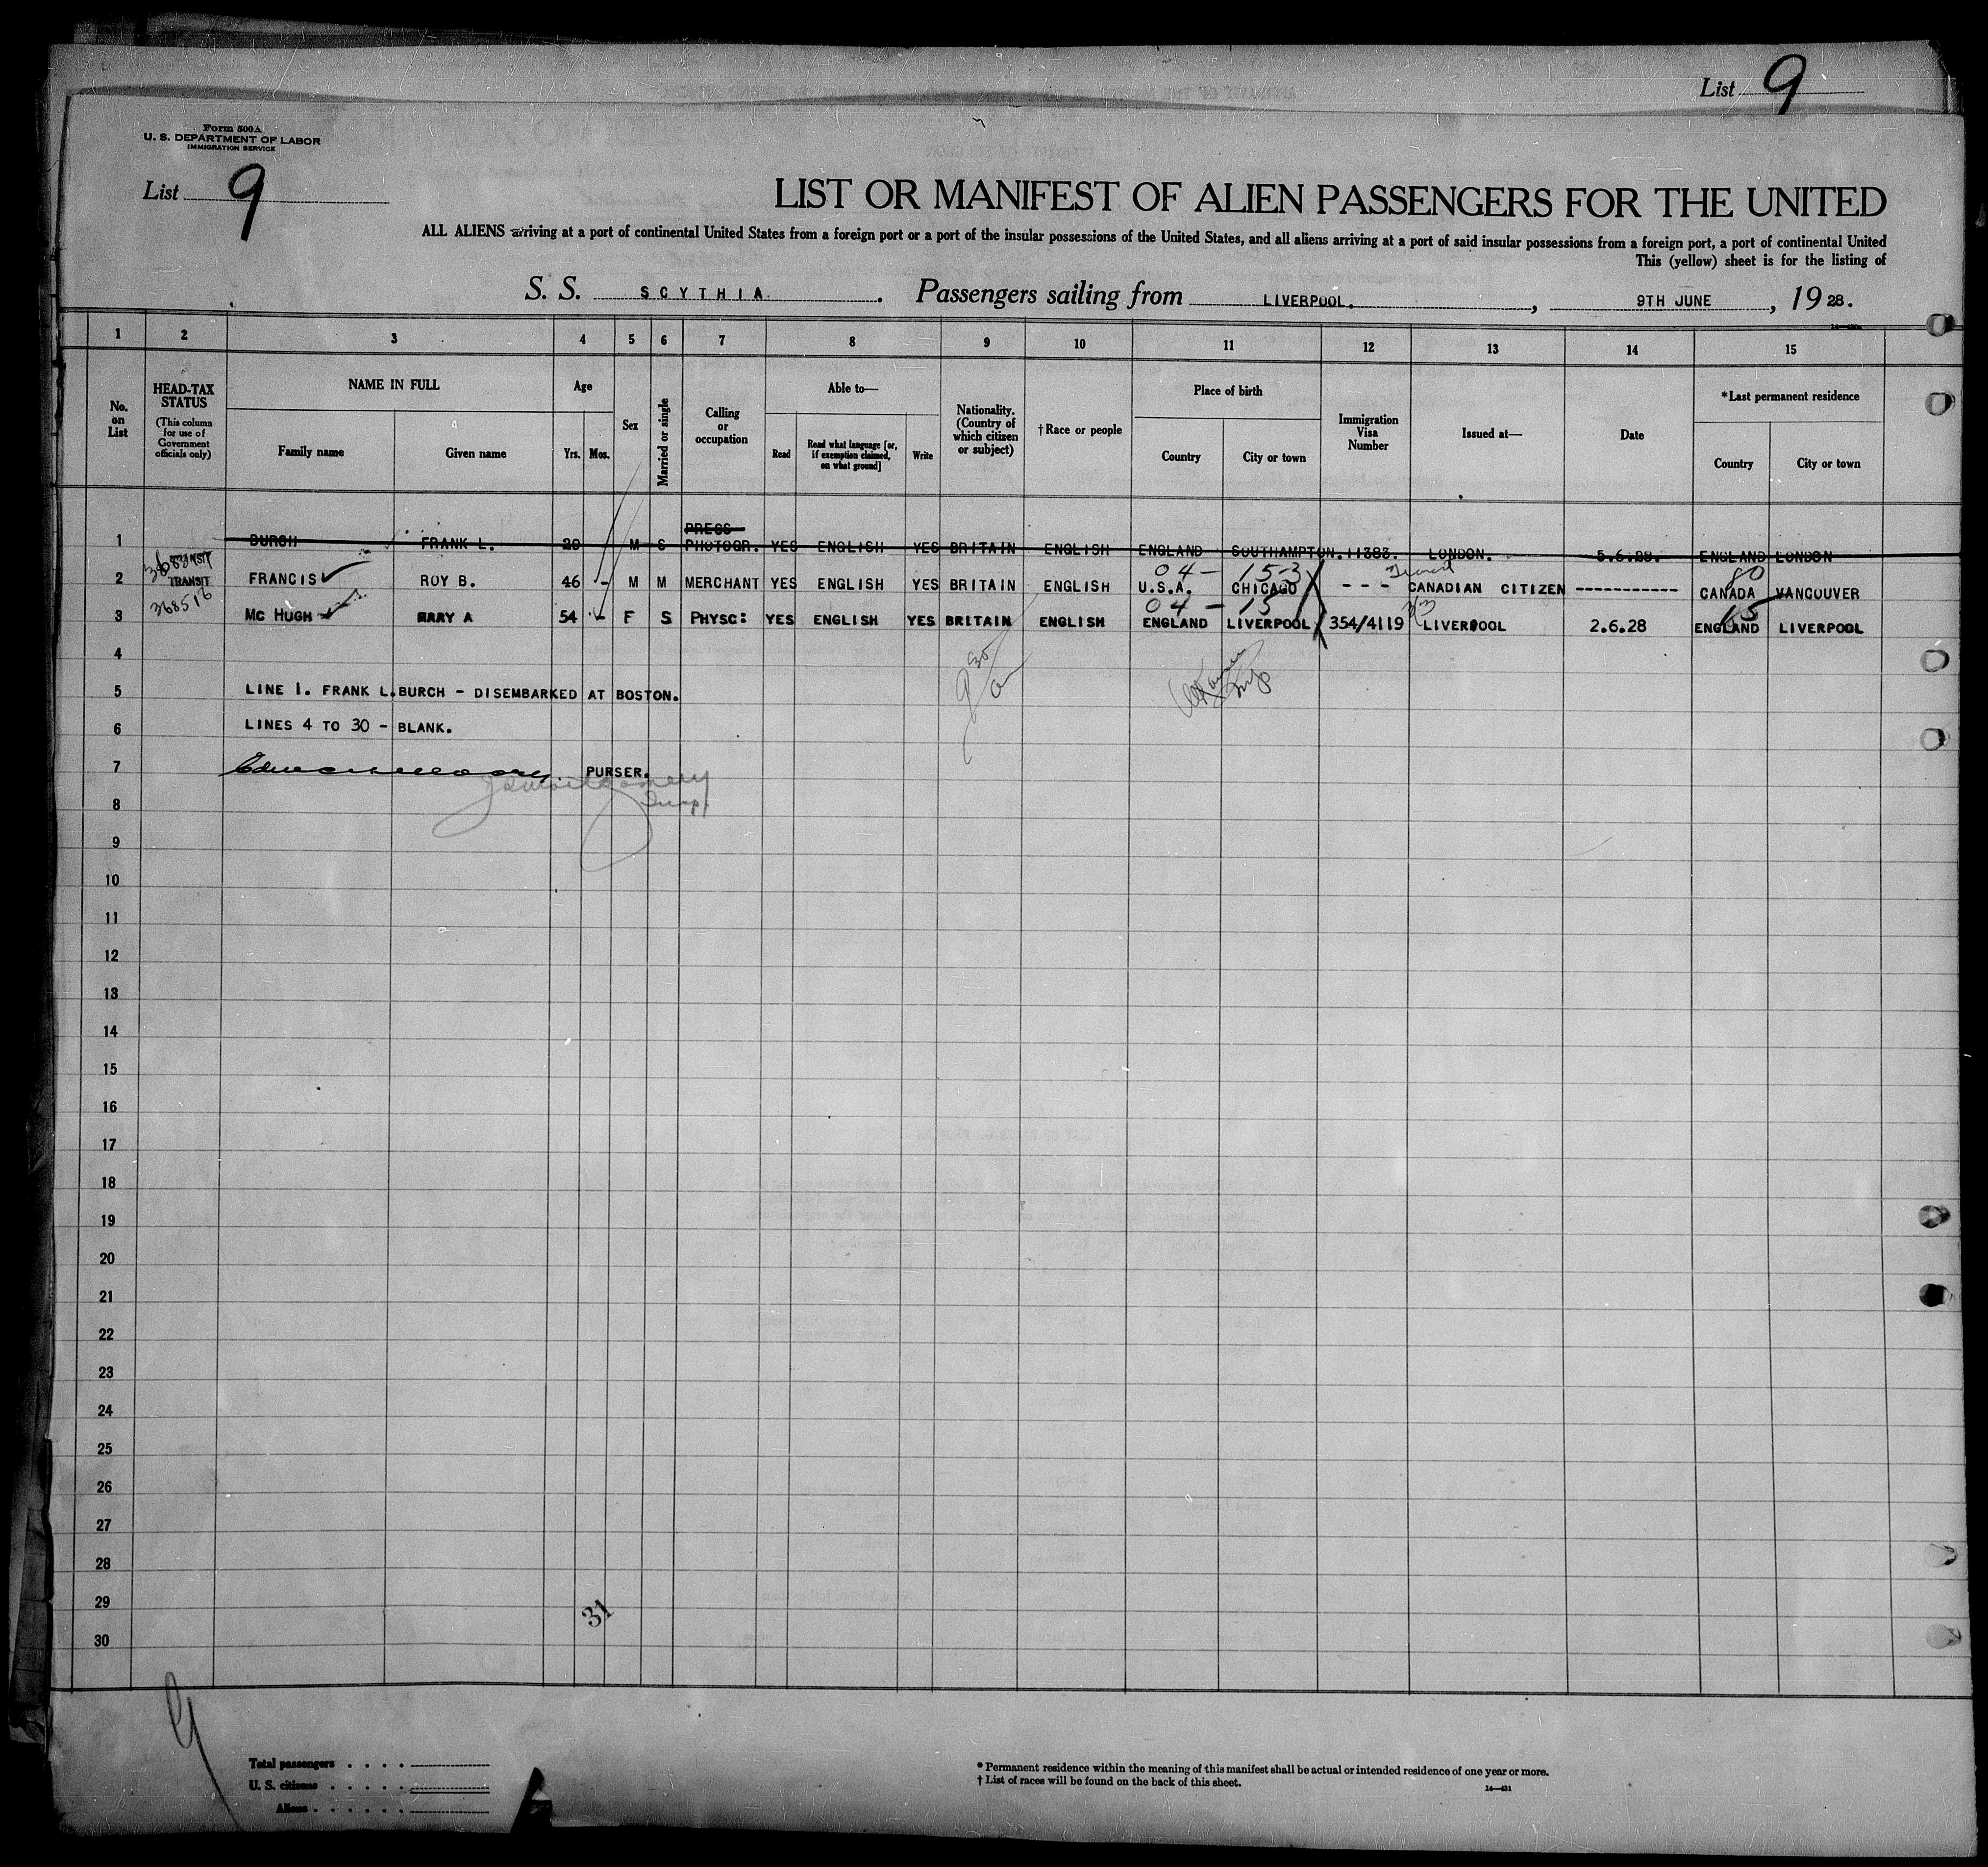 List 9
Form 500A
U. S. DEPARTMENT OF LABOR
IMMIGRATION SERVICE
List 9
LIST OR MANIFEST OF ALIEN PASSENGERS FOR THE UNITED
ALL ALIENS arriving at a port of continental United States from a foreign port or a port of the insular possessions of the United States, and all aliens arriving at a port of said insular possessions from a foreign port, a port of continental United
This (yellow) sheet is for the listing of
S. S. SCYTHIA. Passengers sailing from LIVERPOOL., 9TH JUNE, 1928.
1 2 3 4 5 6 7 8 9 10 11 12 13 14 15
No. on List
HEAD-TAX STATUS
(This column for use of Government officials only)
NAME IN FULL
Family name
Given name
Age
Yrs. Mos.
Sex
Married or single
Calling or occupation
Able to—
Read
Read what language [or, if exemption claimed, on what ground]
Write
Nationality. (Country of which citizen or subject)
†Race or people
Place of birth
Country
City or town
Immigration Visa Number
Issued at—
Date
*Last permanent residence
Country
City or town
PRESS
1 BURCH FRANK L. 29 M S PHOTOGR. YES ENGLISH YES BRITAIN ENGLISH ENGLAND SOUTHAMPTON. 11383. LONDON. 5.6.28. ENGLAND LONDON
TRANSIT 04- 15-3 Transit 80
2 TRANSIT FRANCIS ROY B. 46 - M M MERCHANT YES ENGLISH YES BRITAIN ENGLISH U.S.A. CHICAGO - - - CANADIAN CITIZEN ----------- CANADA VANCOUVER
368516 04 - 15 15
3 MC HUGH MARY A 54 - F S PHYSC: YES ENGLISH YES BRITAIN ENGLISH ENGLAND LIVERPOOL 354/4119 LIVERPOOL 2.6.28 ENGLAND LIVERPOOL
4
5 LINE 1. FRANK L.BURCH - DISEMBARKED AT BOSTON.
6 LINES 4 TO 30 - BLANK.
7 PURSER.
Montgomery
Insp.
8
9
10
11
12
13
14
15
16
17
18
19
20
21
22
23
24
25
26
27
28
29
31
30
9
Total passengers
U. S. citizens
Aliens
* Permanent residence within the meaning of this manifest shall be actual or intended residence of one year or more.
† List of races will be found on the back of this sheet.
14—431